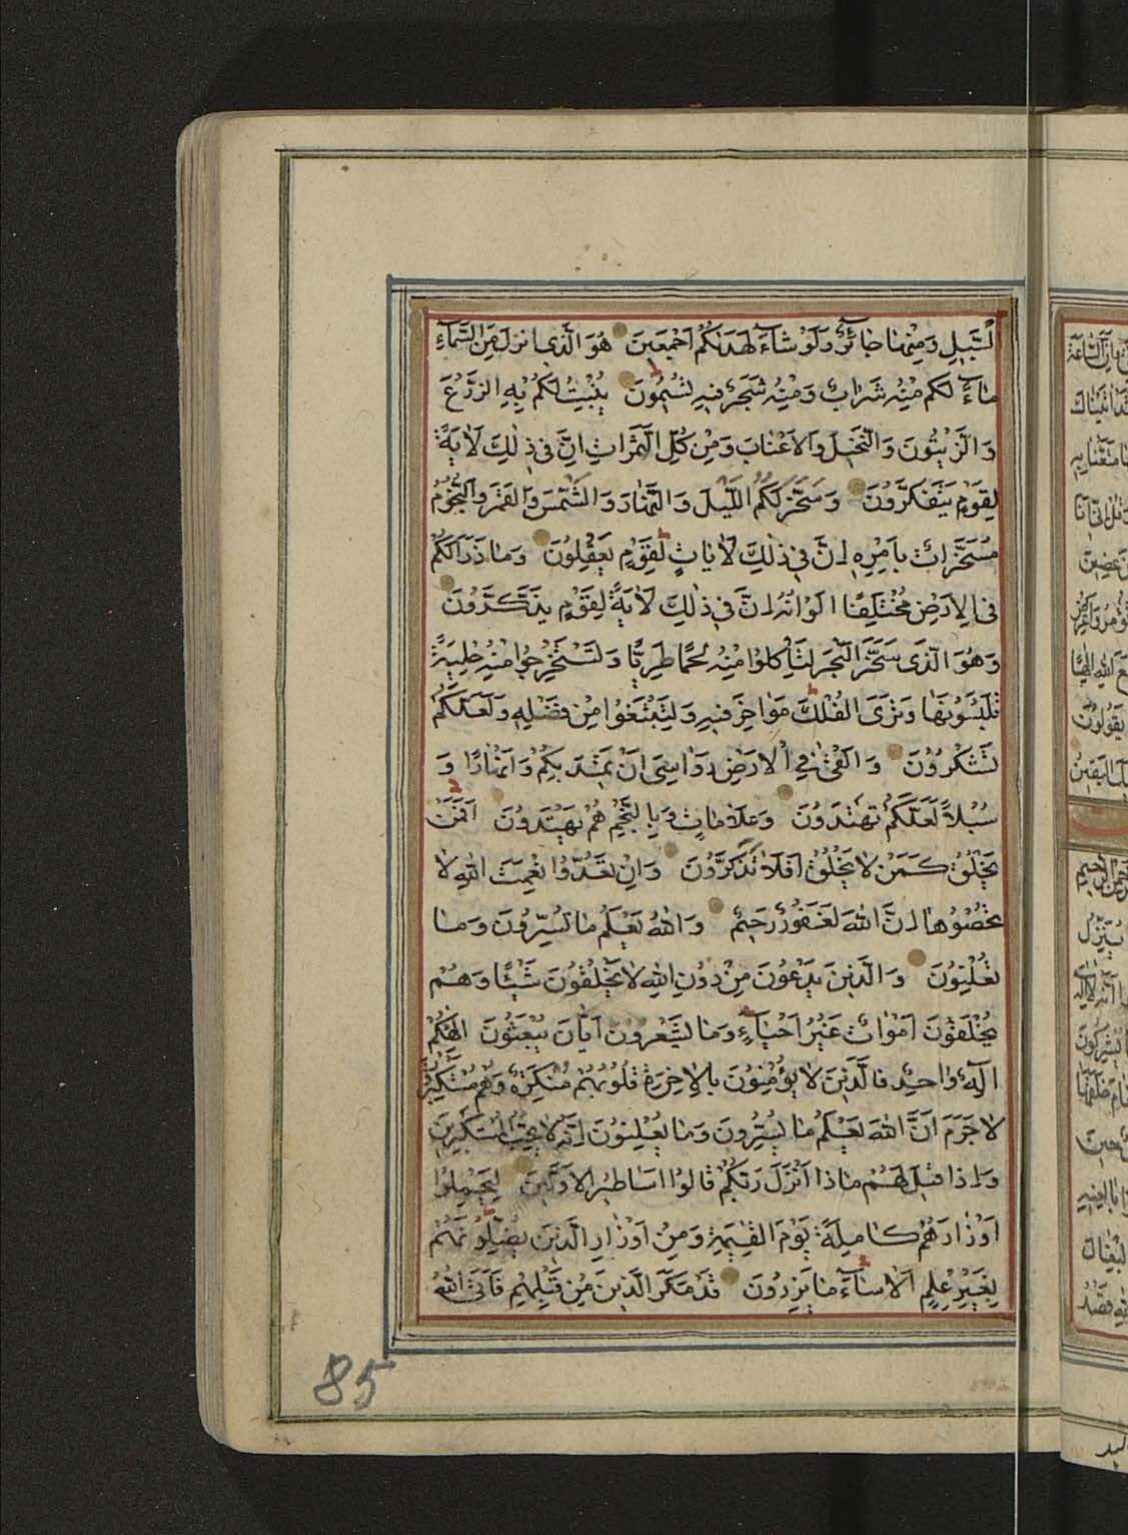 السَّبِيلِ وَمِنْهَا جَائِرٌ وَلَوْ شَاءَ لَهَدٰيكُمْ اَجْمَعِينَ هُوَ الَّذِي اَنْزَلَ مِنَ السَّمَاءِ
مَاءً لَكُمْ مِنْهُ شَرَابٌ وَمِنْهُ شَجَرٌ فِيهِ تُسِيمُونَ يُنْبِتُ لَكُمْ بِهِ الزَّرْعَ
وَالزَّيْتُونَ وَالنَّخِيلَ وَالْاَعْنَابَ وَمِنْ كُلِّ الثَّمَرَاتِ اِنَّ فِي ذٰلِكَ لَاٰيَةً
لِقَوْمٍ يَتَفَكَّرُونَ وَسَخَّرَ لَكُمُ اللَّيْلَ وَالنَّهَارَ وَالشَّمْسَ وَالْقَمَرَ وَالنُّجُومُ
مُسَخَّرَاتٌ بِاَمْرِهِ اِنَّ فِي ذٰلِكَ لَاٰيَاتٍ لِقَوْمٍ يَعْقِلُونَ وَمَا ذَرَاَ لَكُمْ
فِي الْاَرْضِ مُخْتَلِفًا اَلْوَانُهُ اِنَّ فِي ذٰلِكَ لَاٰيَةً لِقَوْمٍ يَذَّكَّرُونَ
وَهُوَ الَّذِي سَخَّرَ الْبَحْرَ لِتَأْكُلُوا مِنْهُ لَحْمًا طَرِيًّا وَتَسْتَخْرِجُوا مِنْهُ حِلْيَةً
تَلْبَسُونَهَا وَتَرَى الْفُلْكَ مَوَاخِرَ فِيهِ وَلِتَبْتَغُوا مِنْ فَضْلِهِ وَلَعَلَّكُمْ
تَشْكُرُونَ وَاَلْقٰى فِي الْاَرْضِ رَوَاسِيَ اَنْ تَمِيدَ بِكُمْ وَاَنْهَارًا وَ
سُبُلًا لَعَلَّكُمْ تَهْتَدُونَ وَعَلَامَاتٍ وَبِالنَّجْمِ هُمْ يَهْتَدُونَ اَفَمَنْ
يَخْلُقُ كَمَنْ لَا يَخْلُقُ اَفَلَا تَذَكَّرُونَ وَاِنْ تَعُدُّوا نِعْمَتَ اللّٰهِ لَا
تُحْصُوهَا اِنَّ اللّٰهَ لَغَفُورٌ رَحِيمٌ وَاللّٰهُ يَعْلَمُ مَا تُسِرُّونَ وَمَا
تُعْلِنُونَ وَالَّذِينَ يَدْعُونَ مِنْ دُونِ اللّٰهِ لَا يَخْلُقُونَ شَيْئًا وَهُمْ
يُخْلَقُونَ اَمْوَاتٌ غَيْرُ اَحْيَاءٍ وَمَا يَشْعُرُونَ اَيَّانَ يُبْعَثُونَ اِلٰهُكُمْ
اِلٰهٌ وَاحِدٌ فَالَّذِينَ لَا يُؤْمِنُونَ بِالْاٰخِرَةِ قُلُوبُهُمْ مُنْكِرَةٌ وَهُمْ مُسْتَكْبِرُونَ
لَا جَرَمَ اَنَّ اللّٰهَ يَعْلَمُ مَا يُسِرُّونَ وَمَا يُعْلِنُونَ اِنَّهُ لَا يُحِبُّ الْمُسْتَكْبِرِينَ
وَاِذَا قِيلَ لَهُمْ مَاذَا اَنْزَلَ رَبُّكُمْ قَالُوا اَسَاطِيرُ الْاَوَّلِينَ لِيَحْمِلُوا
اَوْزَارَهُمْ كَامِلَةً يَوْمَ الْقِيٰمَةِ وَمِنْ اَوْزَارِ الَّذِينَ يُضِلُّونَهُمْ
بِغَيْرِ عِلْمٍ اَلَا سَاءَ مَا يَزِرُونَ قَدْ مَكَرَ الَّذِينَ مِنْ قَبْلِهِمْ فَاَتَى اللّٰهُ
85